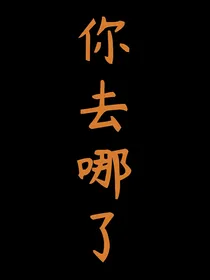 你去哪了